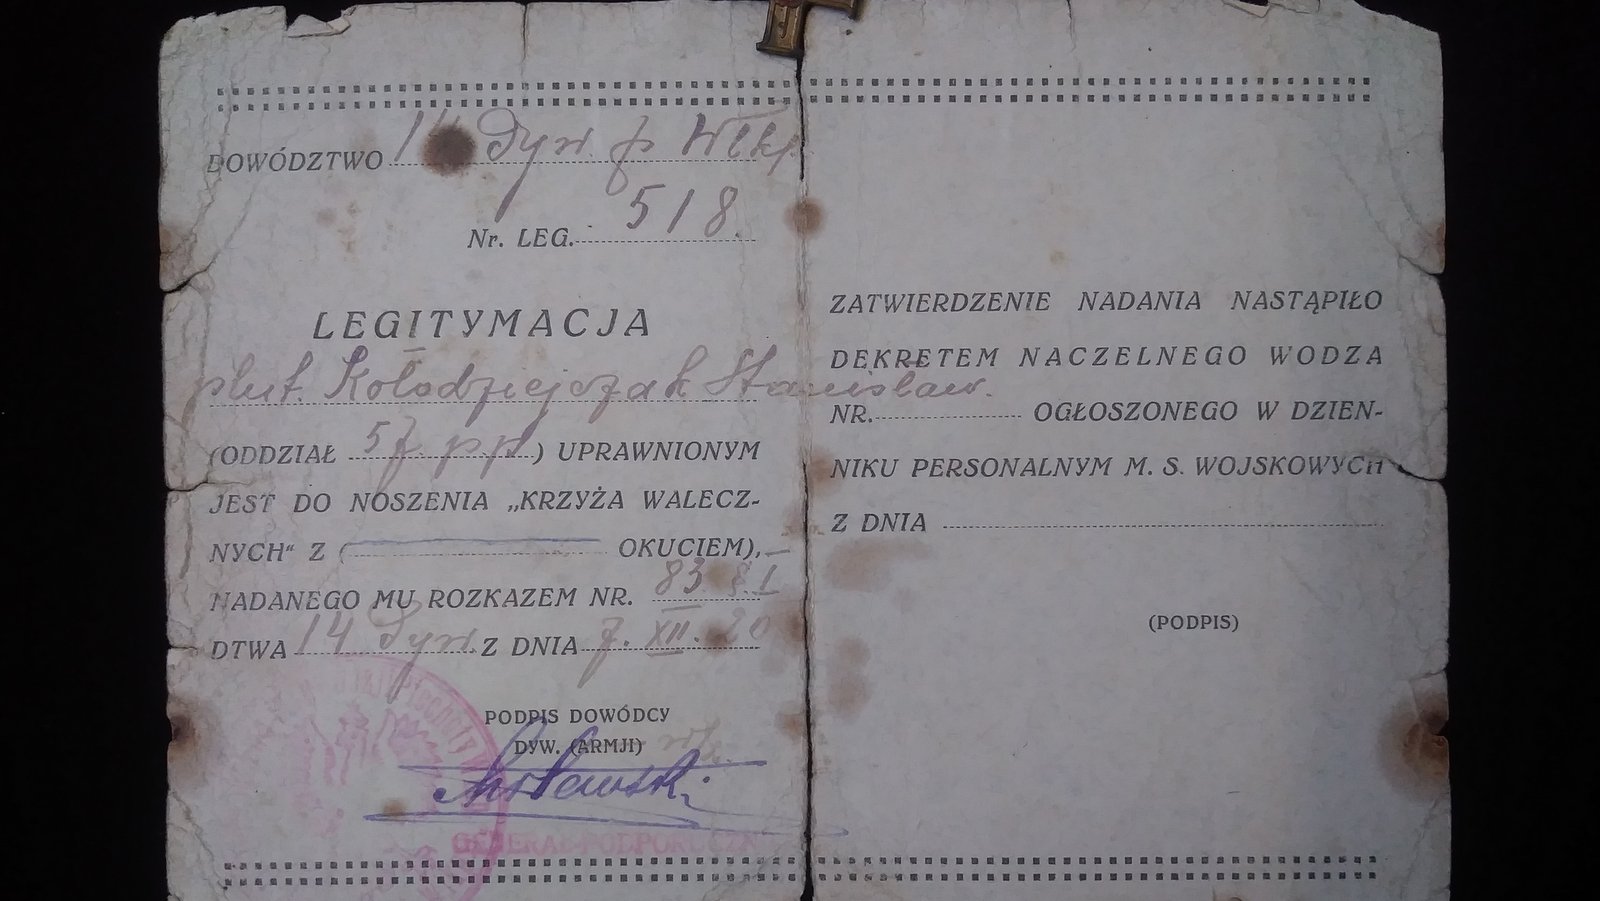 DOWÓDZTWO 14 Dyw. p Wlkp
Nr. LEG. 518.
LEGITYMACJA
plut. Kołodziejczak Stanisław.
(ODDZIAŁ 57 pp.) UPRAWNIONYM
JEST DO NOSZENIA „KRZYŻA WALECZ-
NYCH“ Z ( OKUCIEM),
NADANEGO MU ROZKAZEM NR. 83 §. I
DTWA 14 Dyw. Z DNIA 7. XII. 20
PODPIS DOWÓDCY
DYW. (ARMJI)
GENERAŁ-PODPORUCZNIK
ZATWIERDZENIE NADANIA NASTĄPIŁO
DEKRETEM NACZELNEGO WODZA
NR. OGŁOSZONEGO W DZIEN-
NIKU PERSONALNYM M. S. WOJSKOWYCH
Z DNIA
(PODPIS)